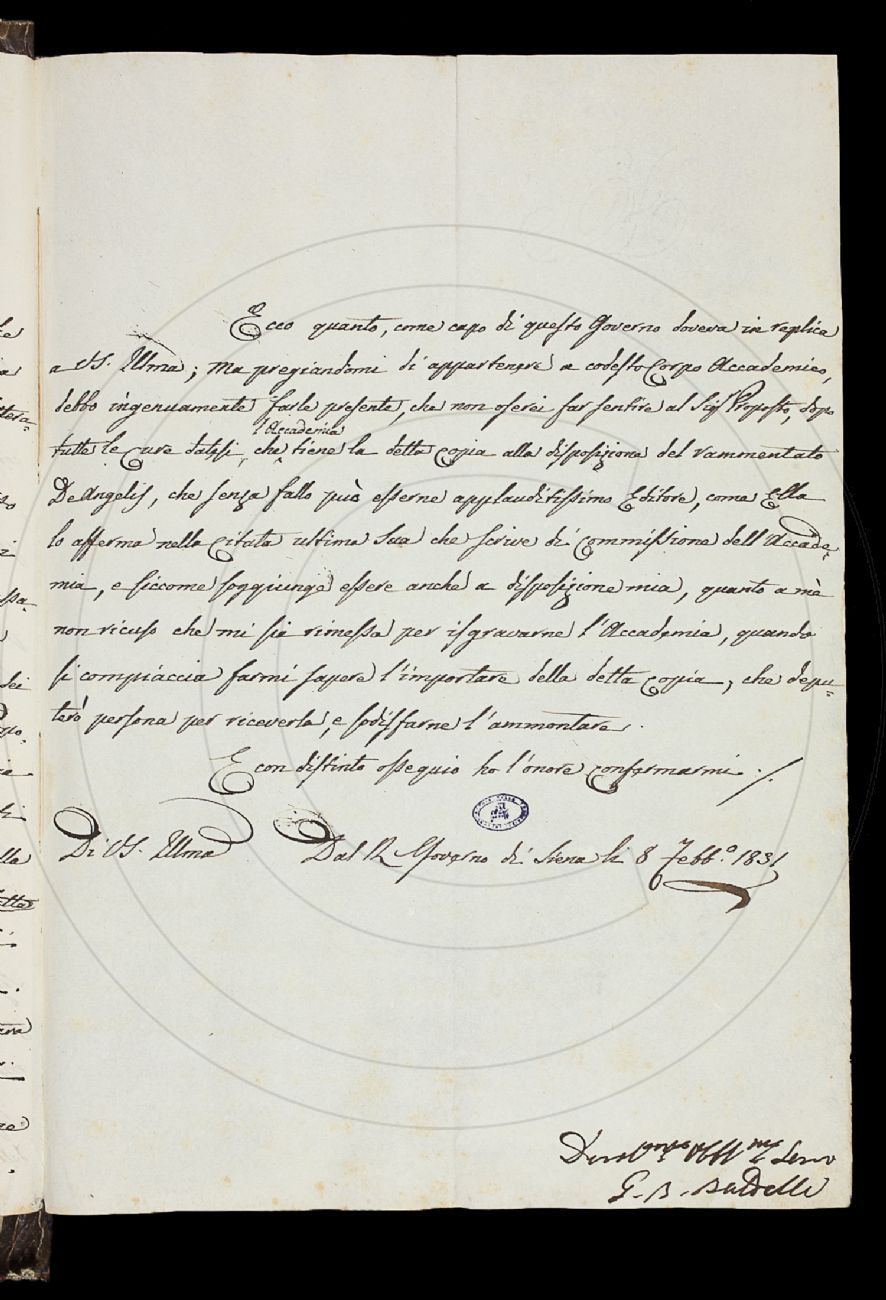 Ecco quanto, come capo di questo Governo doveva in replica
a VS. Illma; Ma pregiandomi di appartenere a codesto Corpo Accademico,
debbo ingenuamente farle presente, che non oserei far sentire al Sig.r Proposto, dopo
l'Accademia
tutte le Cure datesi, che tiene la detta Copia alla disposizione del rammentato
De Angelis, che senza fallo può esserne applauditissimo Editore, come Ella
lo afferma nella Citata ultima Sua che scrive di Commissione dell'Accade=
mia, e siccome soggiunge essere anche a disposizione mia, quanto a me
non ricuso che mi sia rimessa per isgravarne l'Accademia, quando
si compiaccia farmi sapere l'importare della detta Copia, che depu=
terò persona per riceverla, e sodisfarne l'ammontare.
E con distinto ossequio ho l'onore confermarmi ./.
Di VS. Illma
Dal R. Governo di Siena li 8 Febb.o 1831
Dev.mo Obb.mo Serv
G. B. Baldelli